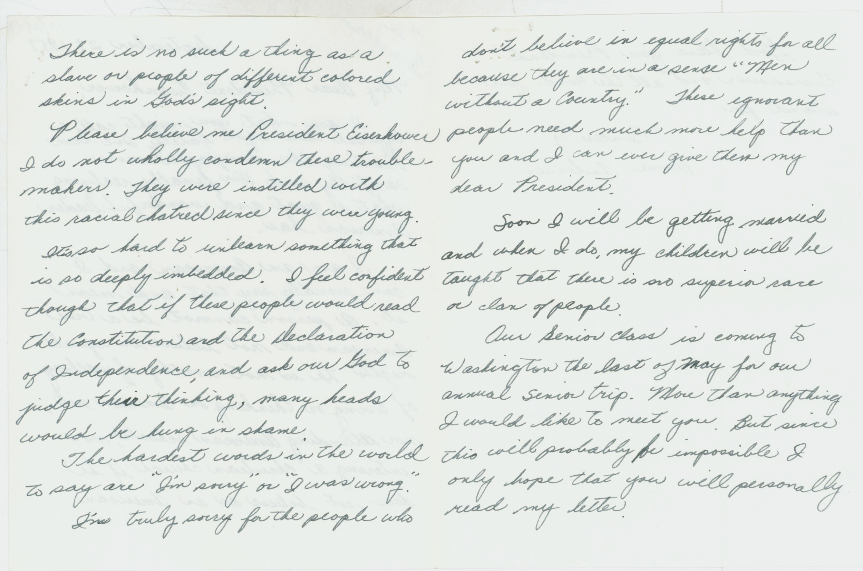 There is no such a thing as a
slave or people of different colored
skins in God's sight.
Please believe me President Eisenhower
I do not wholly condemn these trouble-
makers. They were instilled with
this racial hatred since they were young.
Its so hard to unlearn something that
is so deeply imbedded. I feel confident
though that if these people would read
the Constitution and the Declaration
of Independence, and ask our God to
judge their thinking, many heads
would be hung in shame.
The hardest words in the world
to say are "I'm sorry" or "I was wrong".
I'm truly sorry for the people who
don't believe in equal rights for all
because they are in a sense "Men
without a Country." These ignorant
people need much more help than
you and I can ever give them my
dear President.
Soon I will be getting married
and when I do, my children will be
taught that there is no superior race
or clan of people.
Our Senior class is coming to
Washington the last of May for our
annual Senior trip. More than anything
I would like to meet you. But since
this will probably be impossible I
only hope that you will personally
read my letter.